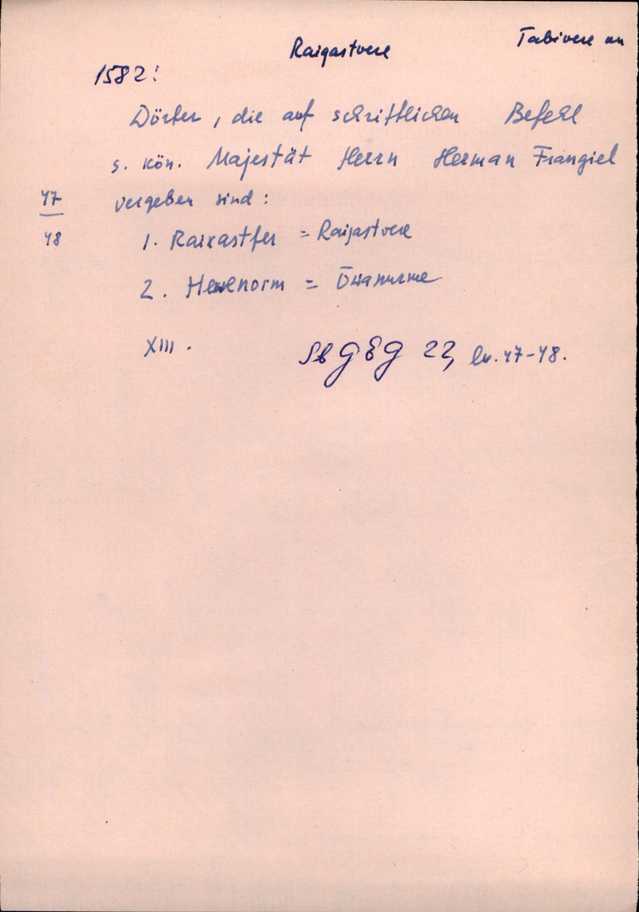 Raigastvere
Tabivere
1582!
Dörfer, die auf schriftlichen Befehl
s. kön. Majestät Herrn Herman Frangiel
47 vergeben sind:
48 1. Raixastfer = Raigastvere
2. = Õvanurme
XIII.
Sb GEG 22, lk. 47-48.